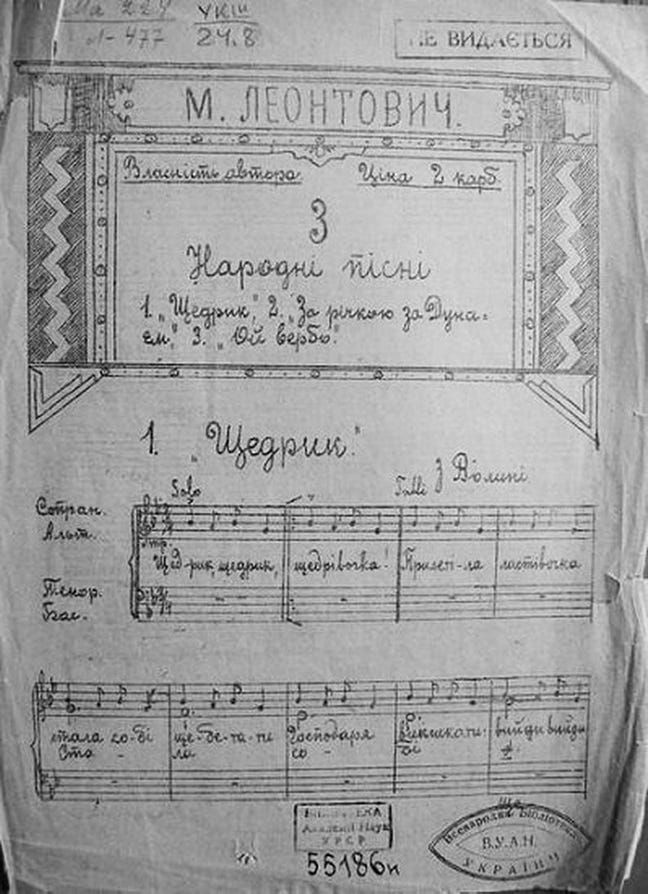 Ма 224 УКШ
Л-477 24.8
НЕ ВИДАЄТЬСЯ
М. ЛЕОНТОВИЧ.
Власність автора. Ціна 2 карб.
3
Народні пісні
1. „Щедрик", 2. „За річкою за Дуна=
єм," 3. „Ой вербо".
1. „Щедрик".
З Волині
Solo Tutti
Сопран.
Альт.
Щед-рик, щедрик, щедрівочка! Прилеті-ла ластівочка
Тенор.
Бас.
стала со-бі ще-бе-та-ти Господаря викликати: вийди вийди
Ста - ла со - бі
Ще
БІБЛІОТЕКА
Академії Наук
УРСР
55186н
Всенародня Бібліотека
В.У.А.Н.
УКРАЇНИ